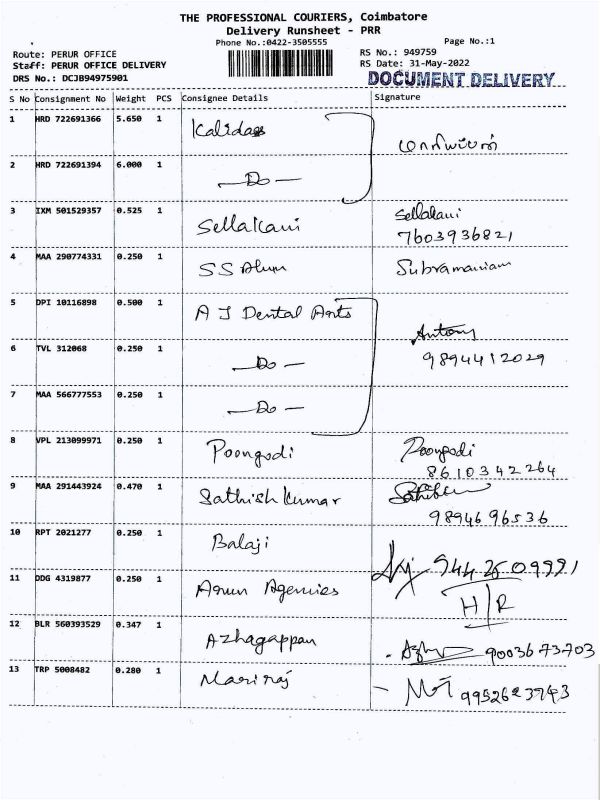 THE PROFESSIONAL COURIERS, Coimbatore
Delivery Runsheet - PRR
Phone No.:0422-3505555
Page No.:1
Route: PERUR OFFICE
RS No.: 949759
Staff: PERUR OFFICE DELIVERY
RS Date: 31-May-2022
DRS No.: DCJB94975901
DOCUMENT DELIVERY
S No Consignment No Weight PCS Consignee Details Signature
1 HRD 722691366 5.650 1 Kalidass
2 HRD 722691394 6.000 1 —Do—
3 IXM 501529357 0.525 1 Sellakani Sellakani
7603936821
4 MAA 290774331 0.250 1 SS Alum Subramaniam
5 DPI 10116898 0.500 1 A J Dental Arts Antony
9894412029
6 TVL 312068 0.250 1 —Do—
7 MAA 566777553 0.250 1 —Do—
8 VPL 213099971 0.250 1 Poongodi Poongodi
8610342264
9 MAA 291443924 0.470 1 Sathish Kumar
9894696536
10 RPT 2021277 0.250 1 Balaji
11 DDG 4319877 0.250 1 Arun Agencies
H/R
12 BLR 560393529 0.347 1 Azhagappan 9003673703
13 TRP 5008482 0.280 1 Mariraj 9952623743